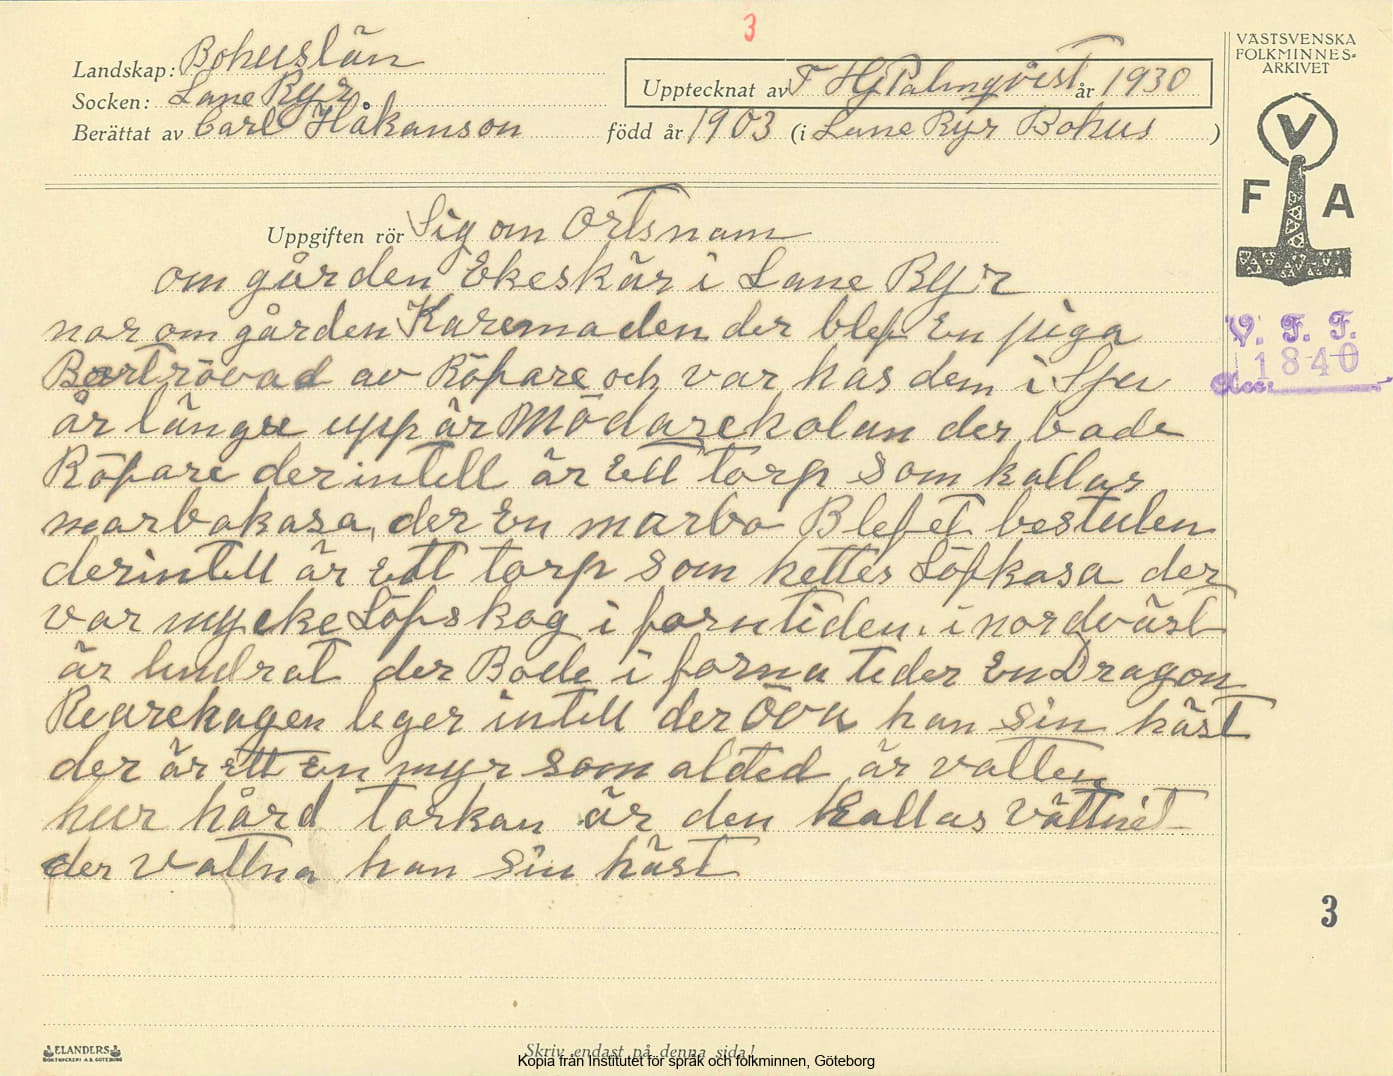 3
VÄSTSVENSKA
FOLKMINNES-
ARKIVET
V
F A
Landskap: Bohuslän
Socken: Lane Ryr
Upptecknat av F Hj Palmqvist år 1930
Berättat av Carl Håkanson född år 1903 (i Lane Ryr Bohus )
Uppgiften rör Sig om Ortsnam
om gården Ekeskär i Lane Ryr
nor om gården Karemaden der blef En piga
Bortrövad av Röfare och var hos dem i Sju
år längre upp är Mödarekolan der bode
Röfare derintell är Ett torp som kallas
marbokasa, der En marbo Blef et bestulen
derintell är Ett torp som hettes Löfkasa der
var mycke Löfskog i forntiden. i nordväst
är lindrat der Bode i forna tider En Dragon
Rearehagen liger intell der Öva han sin häst
der är ett En myr som altid är vatten
hur hård torkan är den kallas Vättnet
der Vattna han sin häst
V. F. F.
1840
Acc.
3
ELANDERS
BOKTRYCKERI A.B. GÖTEBORG
Skriv endast på denna sida!
Kopia från Institutet för språk och folkminnen, Göteborg